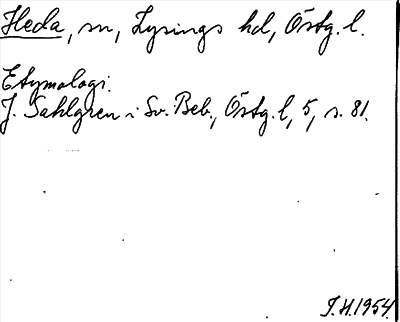 Heda, sn, Lysings hd, Östg. l.
Etymologi.
J. Sahlgren i Sv. Beb., Östg. l, 5, s. 81.
J.H. 1954.